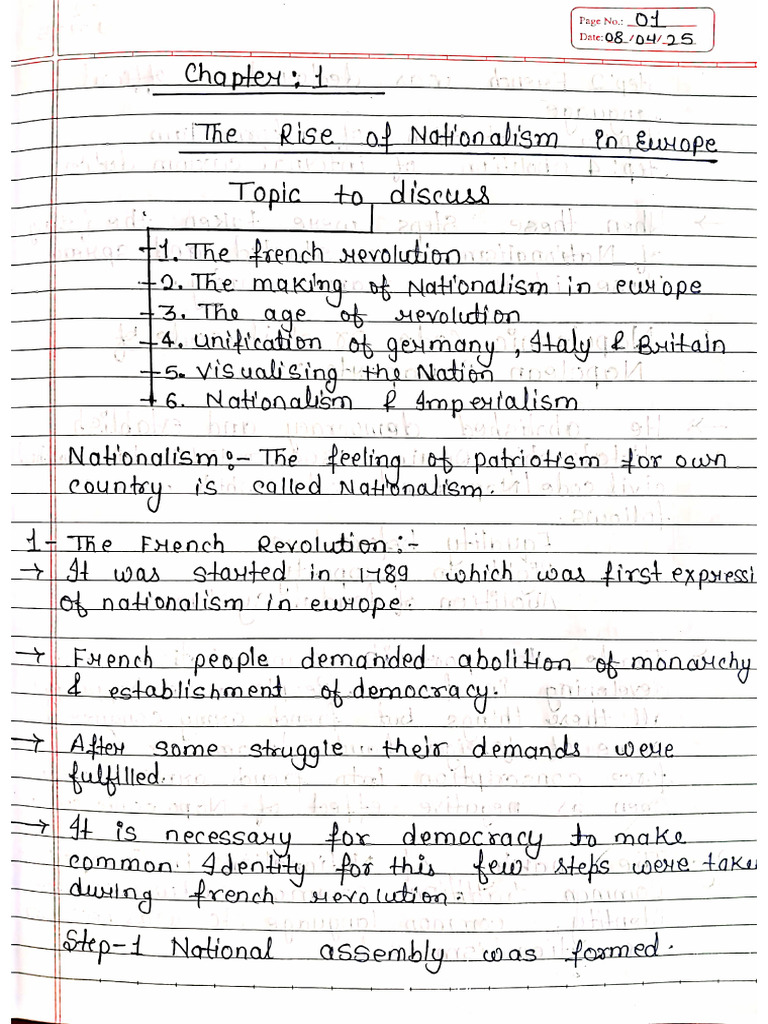 Page No.: 01
Date: 08/04/25
Chapter: 1
The Rise of Nationalism in Europe
Topic to discuss
1. The french revolution
2. The making of Nationalism in europe
3. The age of revolution
4. unification of germany, Italy & Britain
5. visualising the Nation
6. Nationalism & Imperialism
Nationalism:- The feeling of patriotism for own
country is called Nationalism.
1- The French Revolution:-
→ It was started in 1789 which was first expressi
of nationalism in europe.
→ French people demanded abolition of monarchy
& establishment of democracy.
→ After some struggle their demands were
fulfilled.
→ It is necessary for democracy to make
common Identity for this few steps were take
during french revolution.
Step-1 National assembly was formed.